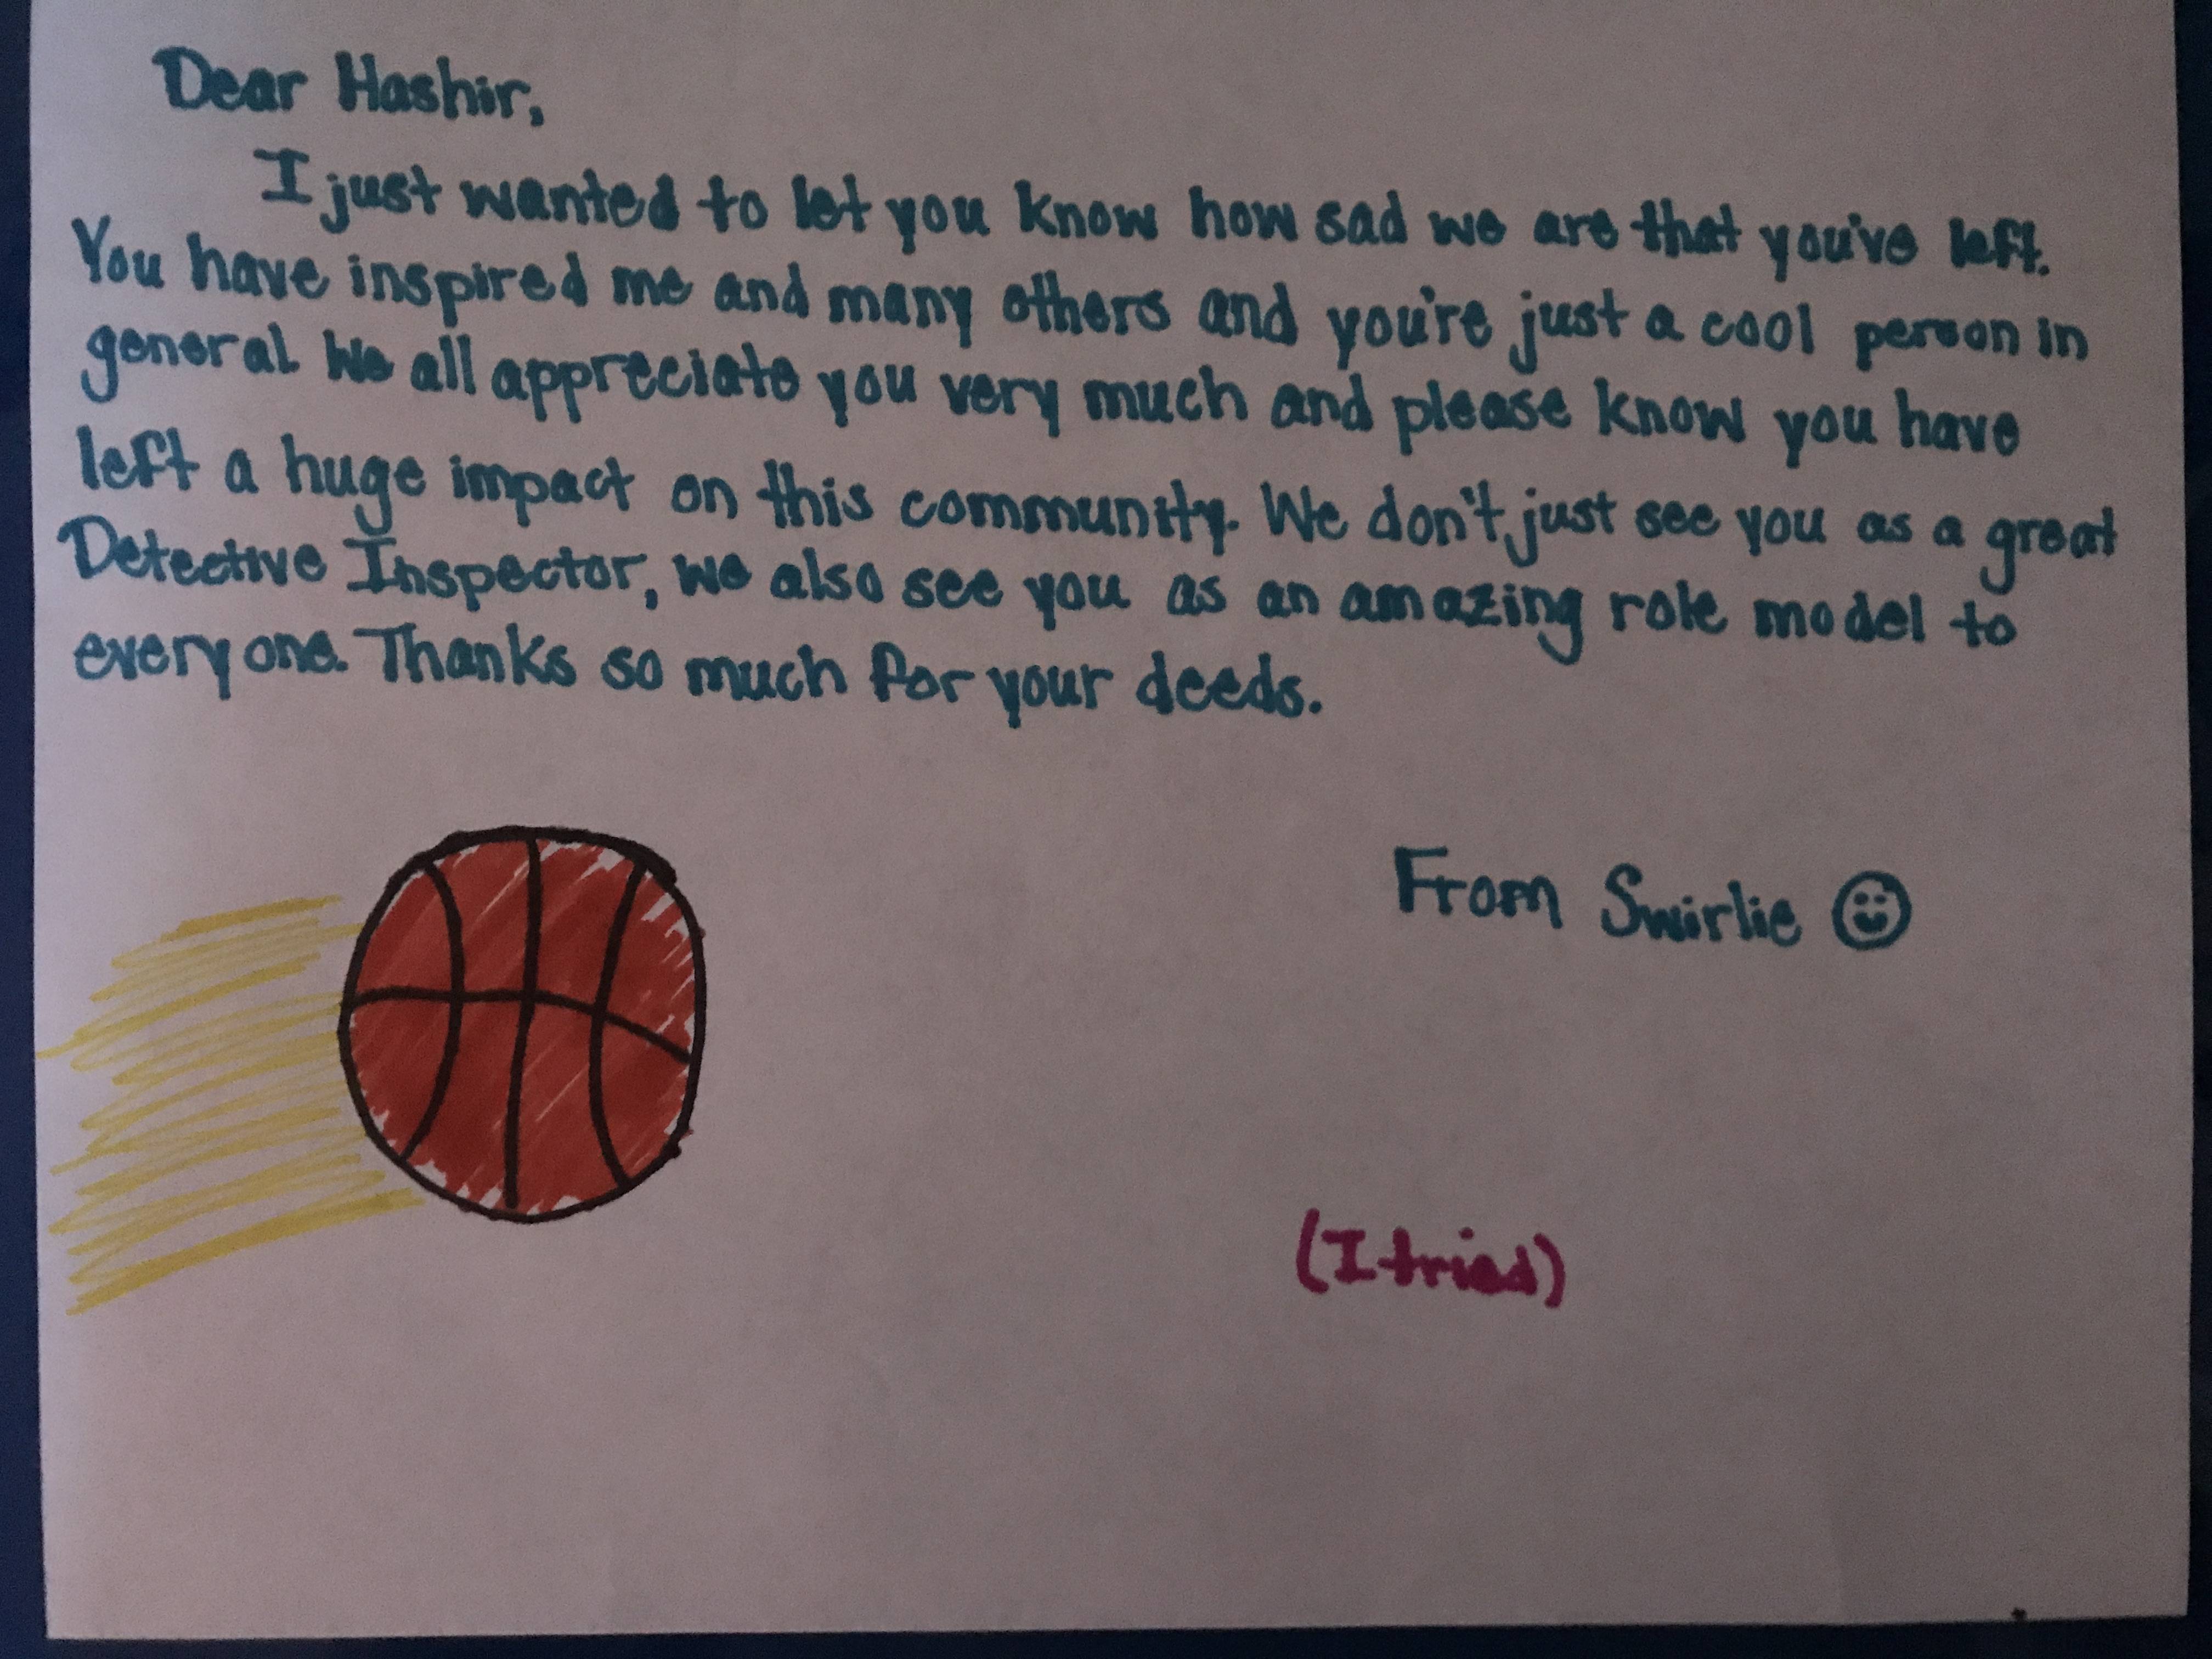 Dear Hashir,
I just wanted to let you know how sad we are that you've left.
You have inspired me and many others and you're just a cool person in
general. We all appreciate you very much and please know you have
left a huge impact on this community. We don't just see you as a great
Detective Inspector, we also see you as an amazing role model to
everyone. Thanks so much for your deeds.
From Swirlie
(I tried)